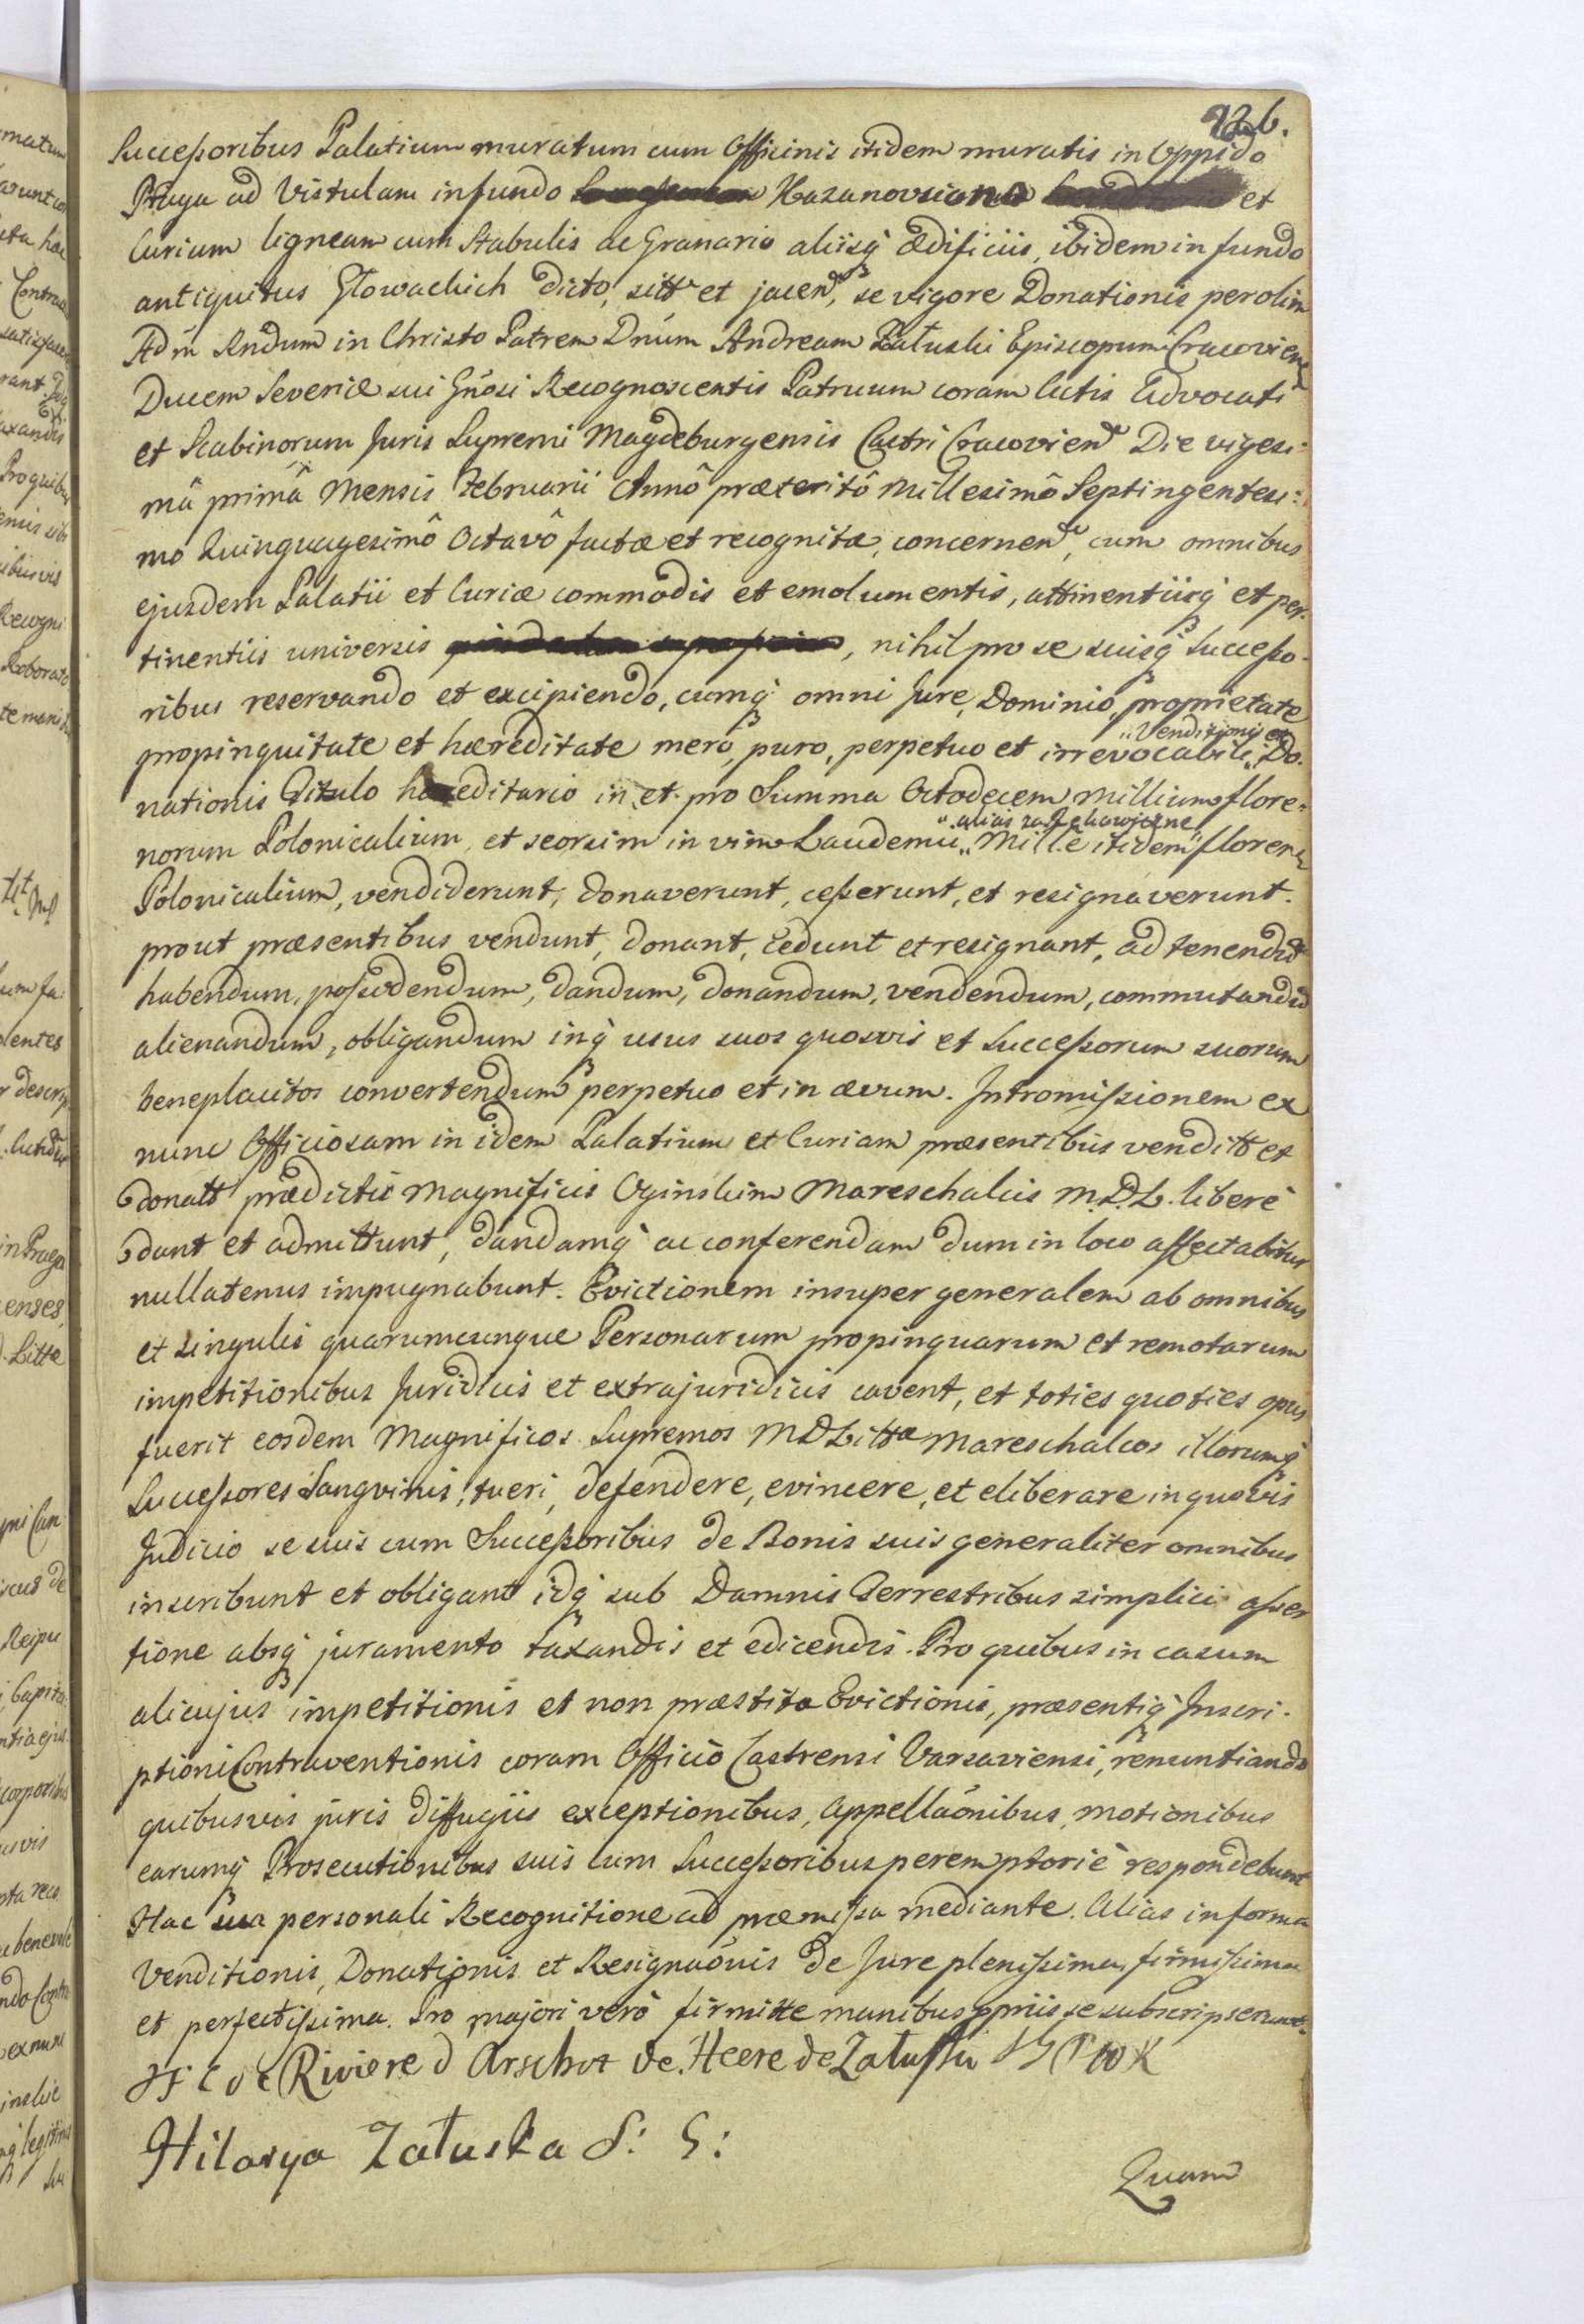 926.
Successoribus Palatium muratum cum Officinis itidem muratis in Oppido
Praga ad Vistulam in fundo Kazanovsciano et
Curiam ligneam cum Stabulis ac Granario aliisq́ Ædificiis, ibidem in fundo
antiquitus Głowackich dicto, sitt et jacen, se vigore Donationis per olim
Adm̃ Rndum in Christo Patrem Dnúm Andream Załuski Episcopum Cracovien
Ducem Severiæ sui Gnósi Recognoscentis Patruum coram Actis Advocati
et Scabinorum Juris Supremi Magdeburgensis Castri Cracovien Die vigesi:
mâ primâ Mensis Februarii Annô præteritô Millesimô Septingentesi:
mo Quinquagesimô Octavô factæ et recognitæ, concernen, cum omnibus
ejusdem Palatii et Curiæ commodis et emolumentis, attinentiisq́ et per:
tinentiis universis , nihil pro se suisq́ Successo-
ribus reservando et excipiendo, cumq́ omni Jure, Dominio, proprietate
propinquitate et hæreditate mero, puro, perpetuo et irrevocabili „Venditionis et„ Do.
nationis Titulo hæreditario in et pro Summa Octodecem Millium flore:
norum Polonicalium, et seorsim in vim Laudemii „alias Mille itidem„ floren
Polonicalium, vendiderunt, donaverunt, cesserunt, et resignaverunt.
prout præsentibus vendunt, donant, cedunt et resignant, ad tenendũ
habendum, possidendum, dandum, donandum, vendendum, commutandũ
alienandum, obligandum inq́ usus suos quosvis et Successorum suorum
beneplacitos convertendum perpetuo et in ævum. Intromissionem ex
nunc Officiosam in idem Palatium et Curiam præsentibus venditt et
donatt prædictis Magnificis Oginskim Mareschalcis M.D.L. liberè
dant et admittunt, dandamq́ ac conferendam dum in loco affectabitur
nullatenus impugnabunt. Evictionem insuper generalem ab omnibus
et singulis quarumcunque Personarum propinquarum et remotarum
impetitionibus Juridicis et extrajuridicis cavent, et toties quoties opus
fuerit eosdem Magnificos Supremos MDLittæ Mareschalcos illorumq́
Successores Sangvinis, tueri, defendere, evincere, et eliberare in quovis
Judicio se suis cum Successoribus de Bonis suis generaliter omnibus
inscribunt et obligant idq́ sub Damnis Terrestribus simplici asser
tione absq́ juramento taxandis et edicendis. Pro quibus in casum
alicujus impetitionis et non præstitæ Evictionis, præsentiq́ Inscri-
ptioni Contraventionis coram Officio Castrensi Varsaviensi, renuntiando
quibusvis juris diffugiis exceptionibus, Appellaónibus, motionibus
earumq́ Prosecutionibus suis cum Successoribus peremptorié respondebunt
Hac sua personali Recognitione ad præmissa mediante. Alias in forma
Venditionis, Donationis et Resignaónis de Jure plenissima, firmissima
et perfectissima. Pro majori verò firmitte manibus ppriis se subscripserunt.
Riviere d Arschot de Heere de Załuski
Hilarya Załuska S: S:
Quam